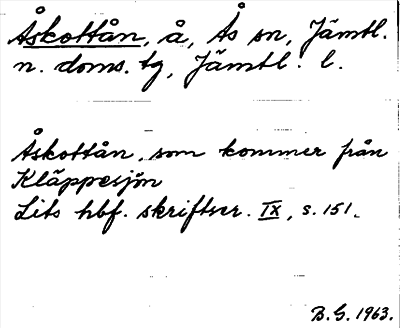 Åskottån, å, Ås sn, Jämtl.
n. doms. tg, Jämtl. l.
Åskottån, som kommer från
Kläppesjön
Lits hbf. skriftser. IX, s. 151.
B.G. 1963.